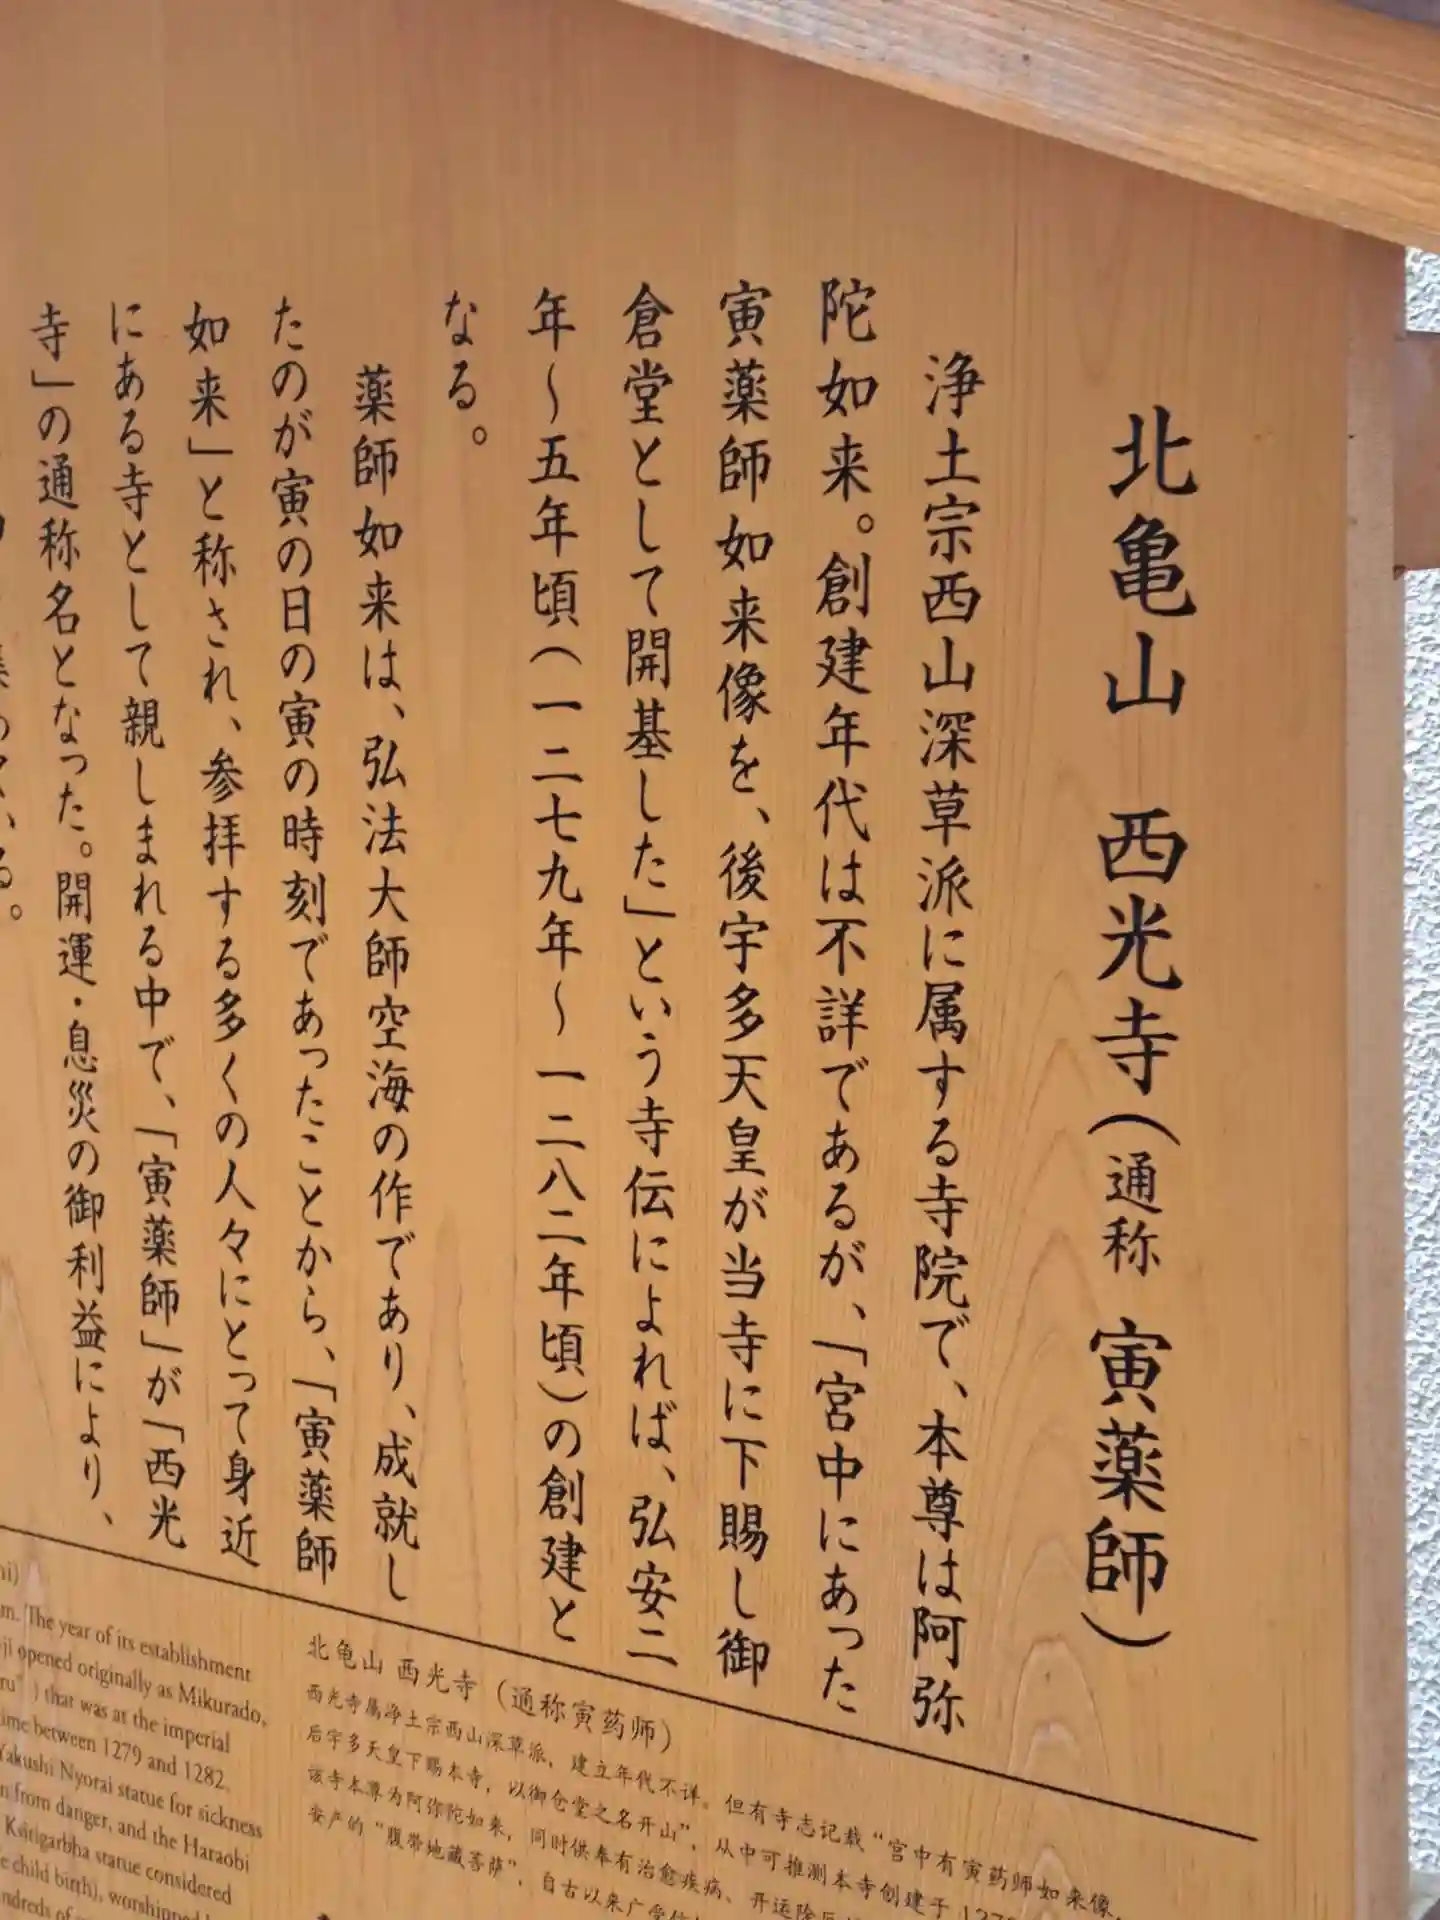 北亀山 西光寺(通称 寅薬師)
浄土宗西山深草派に属する寺院で、本尊は阿弥
陀如来。創建年代は不詳であるが、「宮中にあった
寅薬師如来像を、後宇多天皇が当寺に下賜し御
倉堂として開基した」という寺伝によれば、弘安二
年〜五年頃(一二七九年〜一二八二年頃)の創建と
なる。
薬師如来は、弘法大師空海の作であり、成就し
たのが寅の日の寅の時刻であったことから、「寅薬師
如来」と称され、参拝する多くの人々にとって身近
にある寺として親しまれる中で、「寅薬師」が「西光
寺」の通称名となった。開運・息災の御利益により、
る。
The year of its establishment
opened originally as Mikurado,
) that was at the imperial
between 1279 and 1282.
Yakushi Nyorai statue for sickness
from danger, and the Haraobi
Ksitigarbha statue considered
child birth), worshipped
北龟山 西光寺(通称寅药师)
西光寺属净土宗西山深草派,建立年代不详。但有寺志记载“宫中有寅药师如来像,
后宇多天皇下赐本寺,以御仓堂之名开山”,从中可推测本寺创建于
该寺本尊为阿弥陀如来,同时供奉有治愈疾病、开运除
安产的“腹带地藏菩萨”,自古以来广受